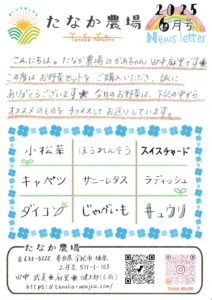 2025
6月号
Newsletter
たなか農場
Tanaka Noujou
こんにちは。たなか農場のかあちゃん 田中麻里です
この度はお野菜セットをご購入いただき、誠に
ありがとうございます 今月のお野菜は、下記の中から
オススメのものをチョイスしてお送りしています。
小松菜 ほうれんそう スイスチャード
キャベツ サニーレタス ラディッシュ
ダイコン じゃがいも キュウリ
たなか農場
〒633-0222 奈良県宇陀市榛原
田中